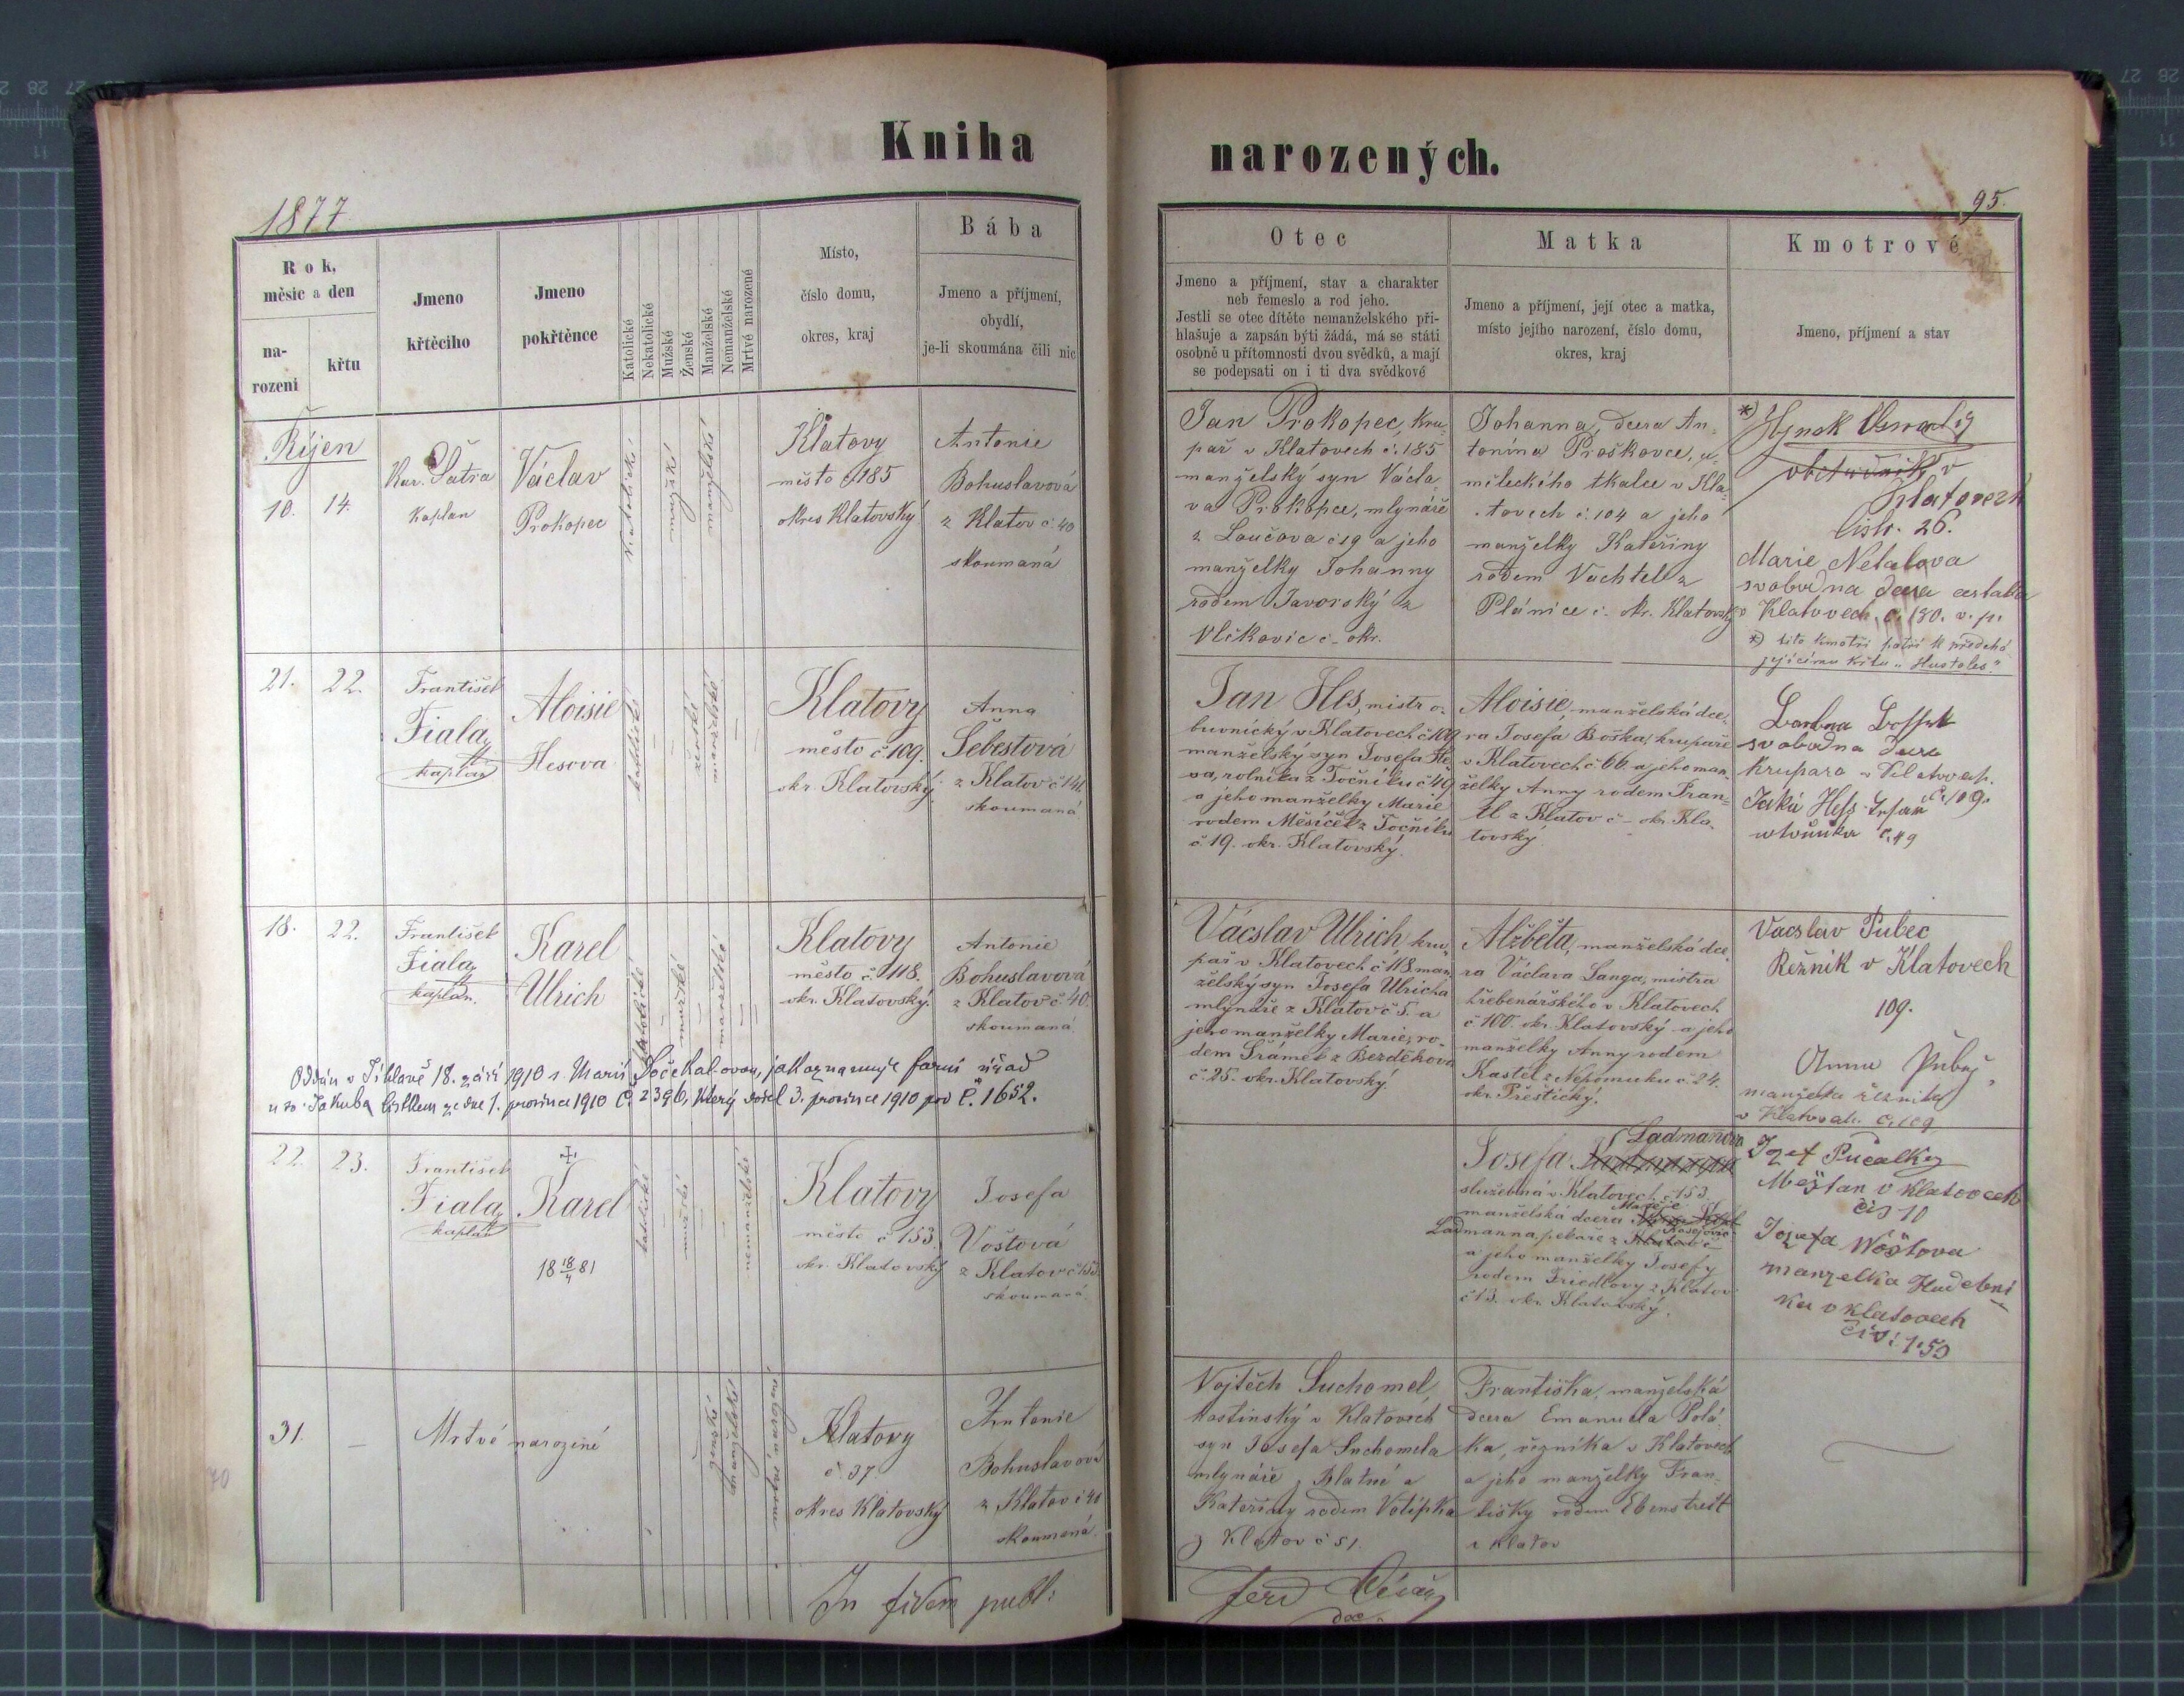 Kniha
narozených.
1877
95.
Rok,
měsíc a den
na-
rození
křtu
Jmeno
křtěcího
Jmeno
pokřtěnce
Katolické
Nekatolické
Mužské
Ženské
Manželské
Nemanželské
Mrtvé narozené
Místo,
číslo domu,
okres, kraj
Bába
Jmeno a příjmení,
obydlí,
je-li skoumána čili nic
Otec
Jmeno a příjmení, stav a charakter
neb řemeslo a rod jeho.
Jestli se otec dítěte nemanželského při-
hlašuje a zapsán býti žádá, má se státi
osobně u přítomnosti dvou svědků, a mají
se podepsati on i ti dva svědkové
Matka
Jmeno a příjmení, její otec a matka,
místo jejího narození, číslo domu,
okres, kraj
Kmotrové
Jmeno, příjmení a stav
Říjen
10.
14.
Kar. Šatra
kaplan
Václav
Prokopec
mužské
manželské
Klatovy
město č 185
okres Klatovský
Antonie
Bohuslavová
z Klatov č. 40
skoumaná
Jan Prokopec, kru-
pař v Klatovech č. 185
manželský syn Václa-
va Prokopce, mlynáře
z Loučova č 19 a jeho
manželky Johanny
rodem Javorský z
Vlčkovic č - okr.
Johanna, dcera An-
tonína Proškovce, u-
měleckého tkalce v Kla-
tovech č. 104 a jeho
manželky Kateřiny
rodem Vachtel z
Plánice č. okr. Klatovský
*) Hynek
v
Klatovech
čislo. 26.
Marie
svobodna dcera
v Klatovech, č. 180. v. p.
*) tito kmotři patří k předchá
zejícímu křtu
21.
22.
František
Fiala,
kaplan
Aloisie
Hesova
katolické
ženské
manželské
Klatovy
město č 109.
okr. Klatovský
Anna
Šebestová
z Klatov č 141
skoumaná
Jan Hes, mistr o-
buvnický v Klatovech č 109
manželský syn Josefa He-
sa, rolníka z Točníku č 49
a jeho manželky Marie
rodem Měsíček z Točníku
č. 19. okr. Klatovský.
Aloisie, manželská dce-
ra Josefa Boška, krupaře
v Klatovech č 66. a jeho man-
želky Anny rodem Fran-
tl z Klatov č - okr. Kla-
tovský
svobodna dcera
Krupara v
č. 109.
č. 49
18.
22.
František
Fiala,
kaplan.
Karel
Ulrich
katolické
mužské
manželské
Klatovy
město č 118.
okr. Klatovský.
Antonie
Bohuslavová
z Klatov č 40.
skoumaná.
Oddán v Jihlavě 18. září 1910 s Marií Dočekalovou, jak oznamuje farní úřad
u sv. Jakuba lístkem ze dne 1. prosince 1910 č. 2396, který došel 3. prosince 1910 pod č. 1652.
Vácslav Ulrich kru-
pař v Klatovech č 118 man-
želský syn Josefa Ulricha
mlynáře z Klatov č 5. a
jeho manželky Marie, ro-
dem Šrámek z Bezděkova
č. 25. okr. Klatovský.
Alžběta, manželská dce-
ra Václava Langa, mistra
hřebenářského v Klatovech
č 100. okr. Klatovský a jeho
manželky Anny rodem
Kastel z Nepomuku č. 24.
okr. Přeštický.
Vacslav Pubec
Režnik v Klatovech
109.
Anna
manželka řezníka
v Klatovech. č. 109
22.
23.
František
Fiala,
kaplan
Karel
18 18/4 81
katolické
mužské
nemanželské
Klatovy
město č 153.
okr. Klatovský
Josefa
Voštová
z Klatov č 153.
skoumaná.
Ladmanova
Josefa
služebná v Klatovech č. 153.
manželská dcera Matěje
Ladmanna, pekaře z
a jeho manželky Josefy
rodem Friedlovy z Klatov
č 13. okr. Klatovský.
Jozef Pucalky
Mešťan v klatovech
čis 10
Jozefa Woštova
manzelka Hudebni
ka v klatovech
čis: 153
31.
Mrtvé narozené
ženské
manželské
mrtvé narozené
Klatovy
č. 37
okres Klatovský
Antonie
Bohuslavová
z Klatov č 40
skoumaná.
Vojtěch Suchomel,
hostinský v Klatovech
syn Josefa Suchomela
mlynáře z Blatné a
Kateřiny rodem Votípka
z Klatov č 51.
Františka, manželská
dcera Emanuela Polá-
ka, řezníka v Klatovech
a jeho manželky Fran-
tišky rodem Ebenstreit
z Klatov
In fidem publ:
Ferd
70